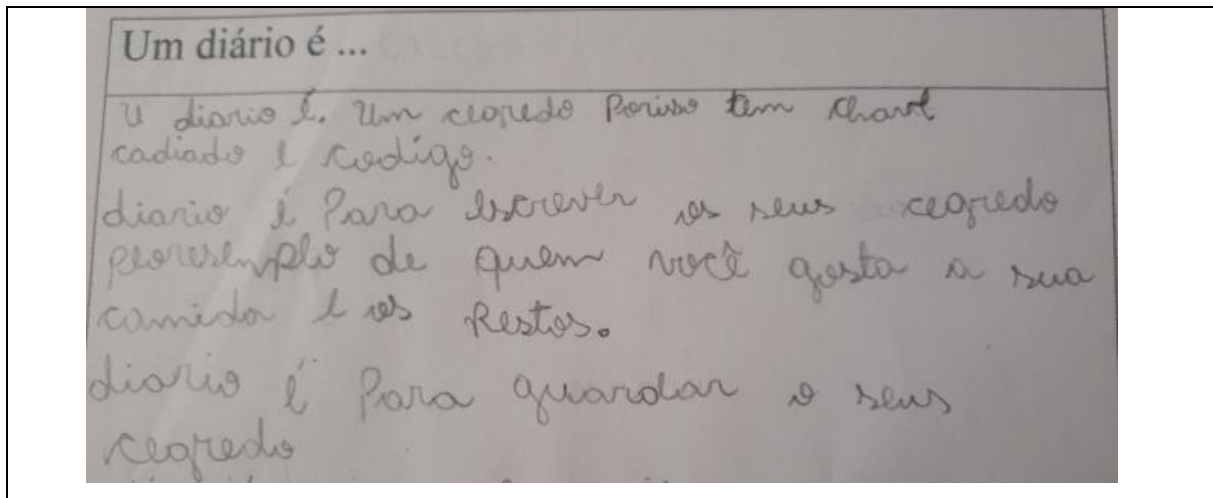 Um diário é ...
U diario é. Um cegredo Poriso tem chave
cadiado e codigo.
diario é Para escrever os seus cegredo
peoresenplo de quem você gosta a sua
comida e os Restos.
diario é Para guardar o seus
cegredo